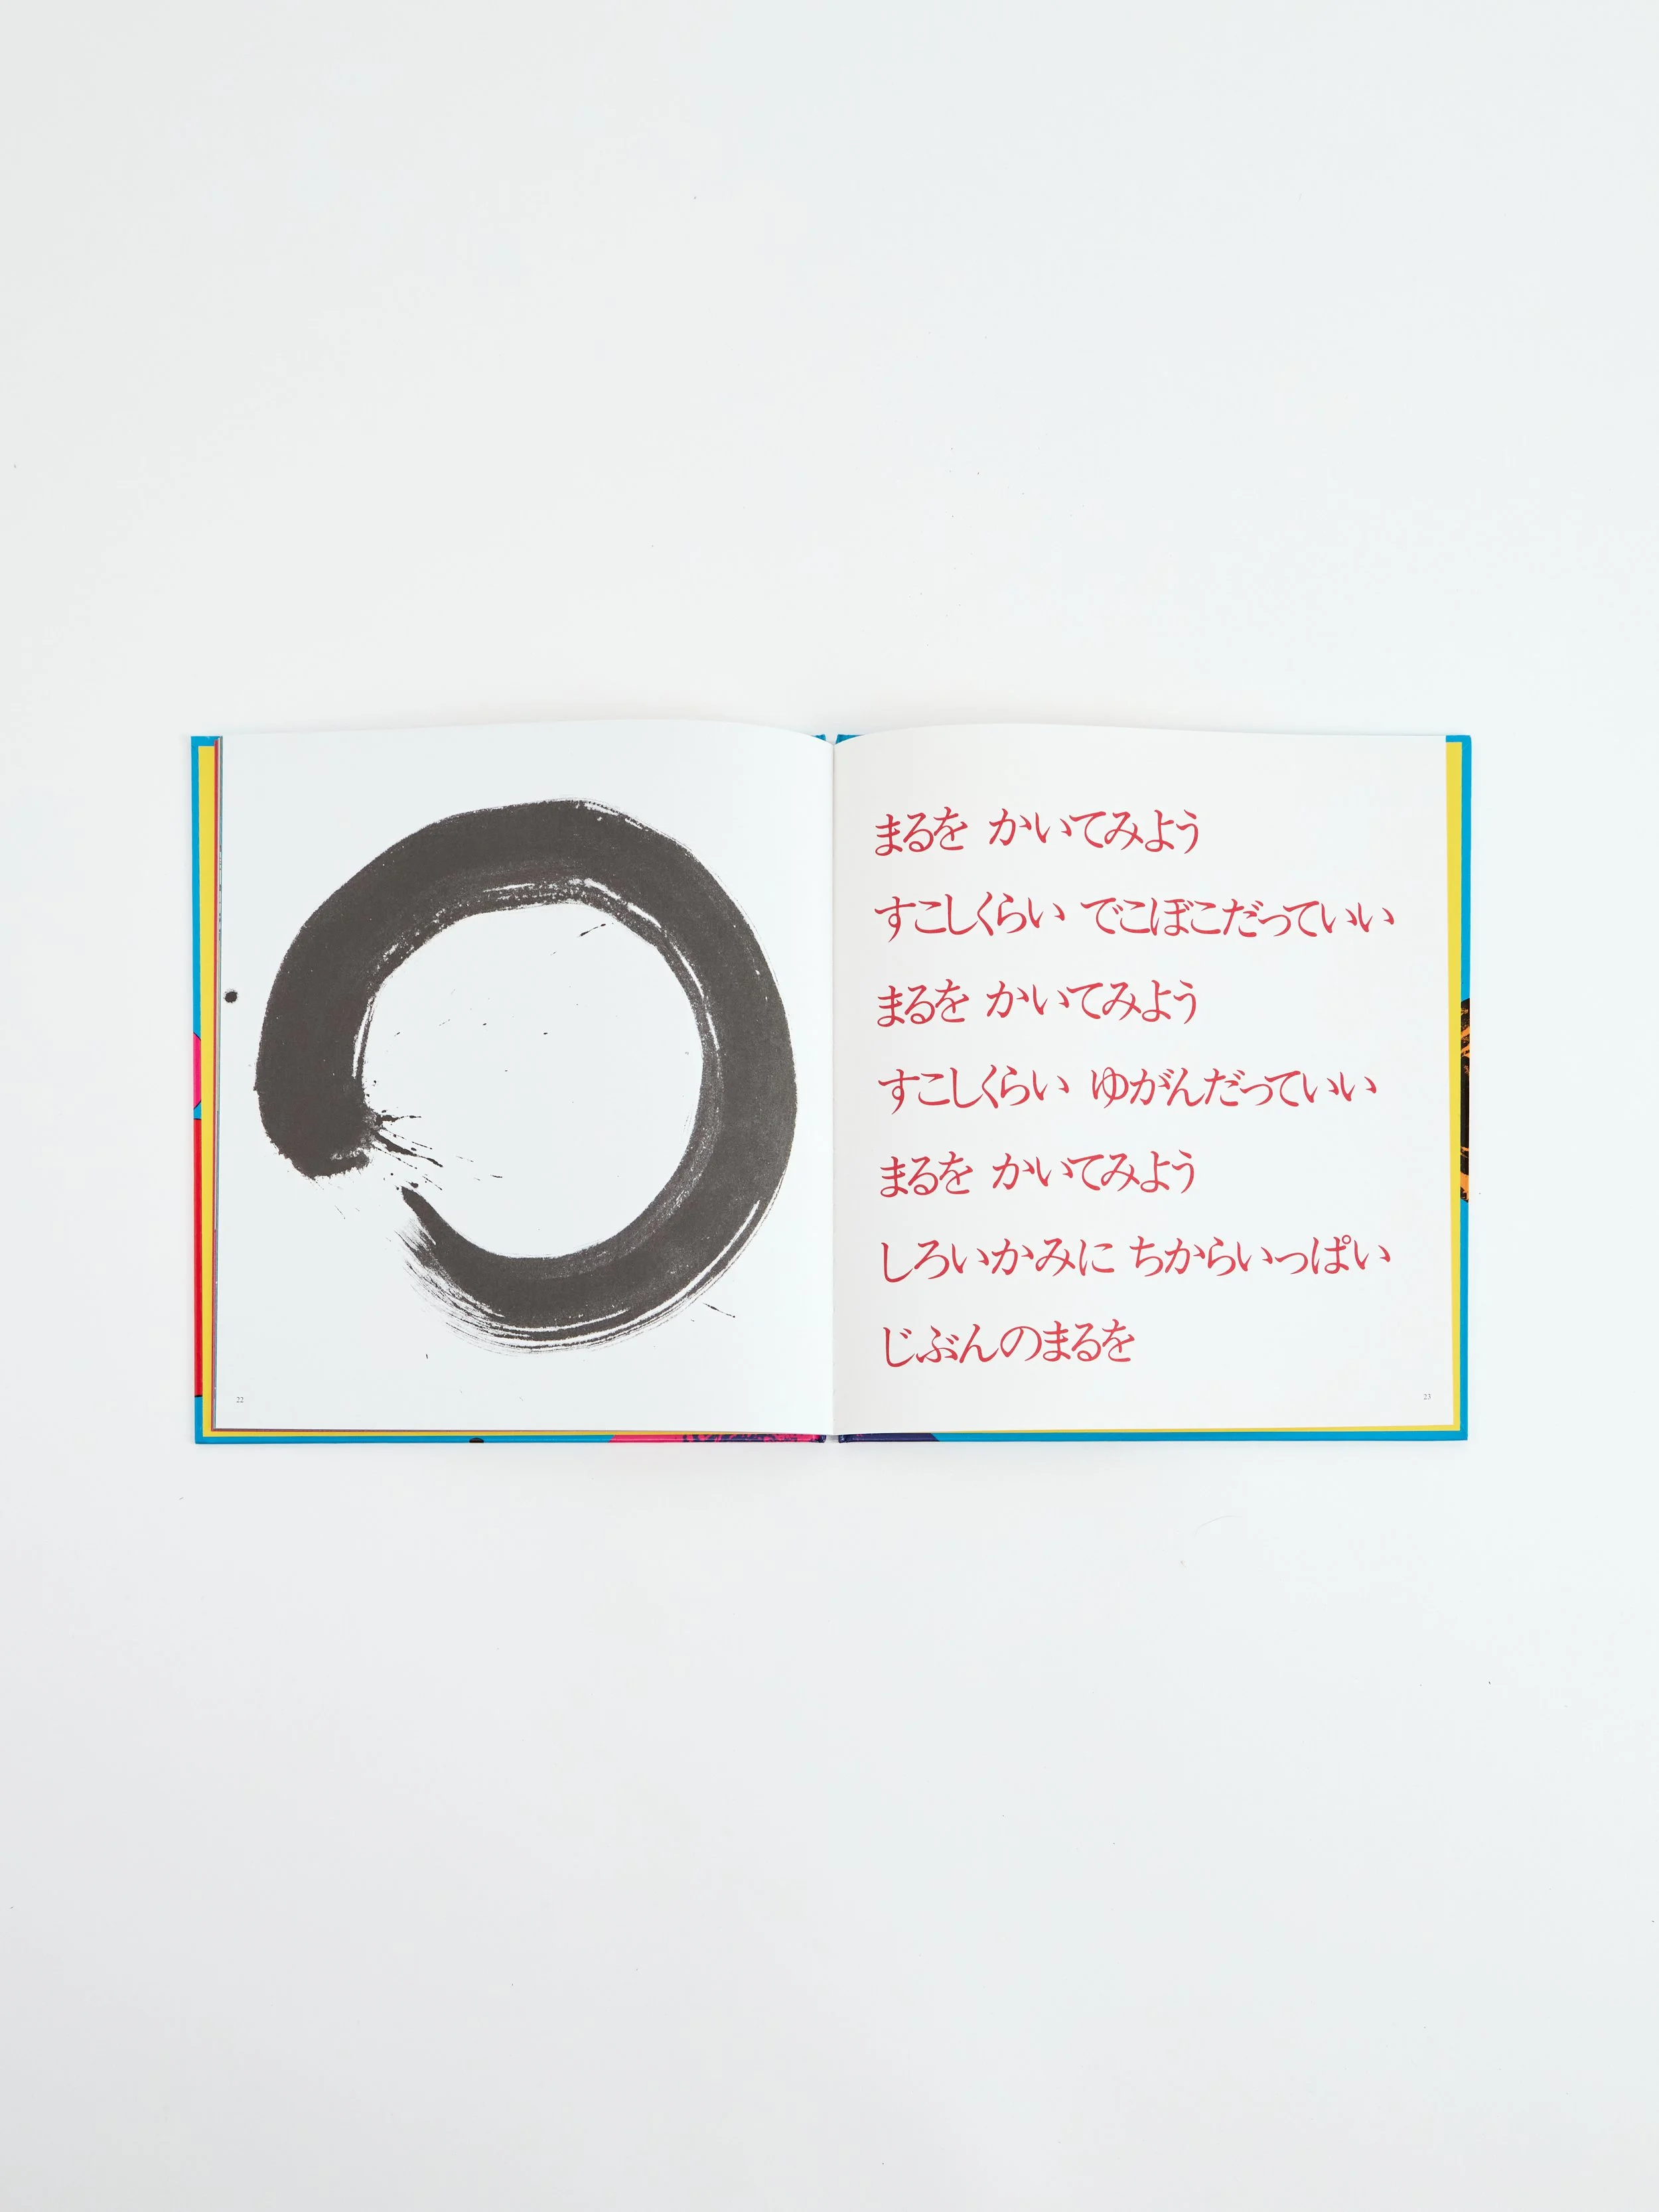 まるを かいてみよう
すこしくらい でこぼこだっていい
まるを かいてみよう
すこしくらい ゆがんだっていい
まるを かいてみよう
しろいかみに ちからいっぱい
じぶんのまるを
22
23